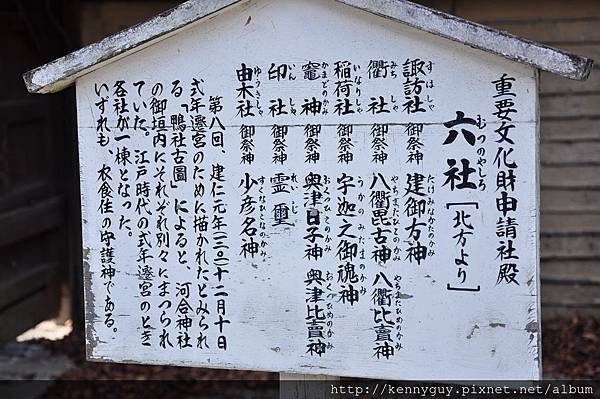 重要文化財申請社殿
六社［北方より］
むつのやしろ
諏訪社 御祭神 建御方神
すはしゃ
たけみなかたのかみ
衢社 御祭神 八衢毘古神 八衢比賣神
みちしゃ
やちまたひこのかみ
やちまたひめのかみ
稲荷社 御祭神 宇迦之御魂神
いなりしゃ
うかのみたまのかみ
竈神 御祭神 奥津日子神 奥津比賣神
かまどのかみ
おくつひこのかみ
おくつひめのかみ
印社 御祭神 霊璽
いんしゃ
れいじ
由木社 御祭神 少彦名神
ゆうきしゃ
すくなひこなのかみ
第八回、建仁元年(一二〇一)十二月十日
式年遷宮のために描かれたとみられ
る「鴨社古図」によると、河合神社
の御垣内にそれぞれ別々にまつられ
ていた。江戸時代の式年遷宮のとき
各社が一棟となった。
いずれも、衣食住の守護神である。
http://kennyguy.pixnet.net/album